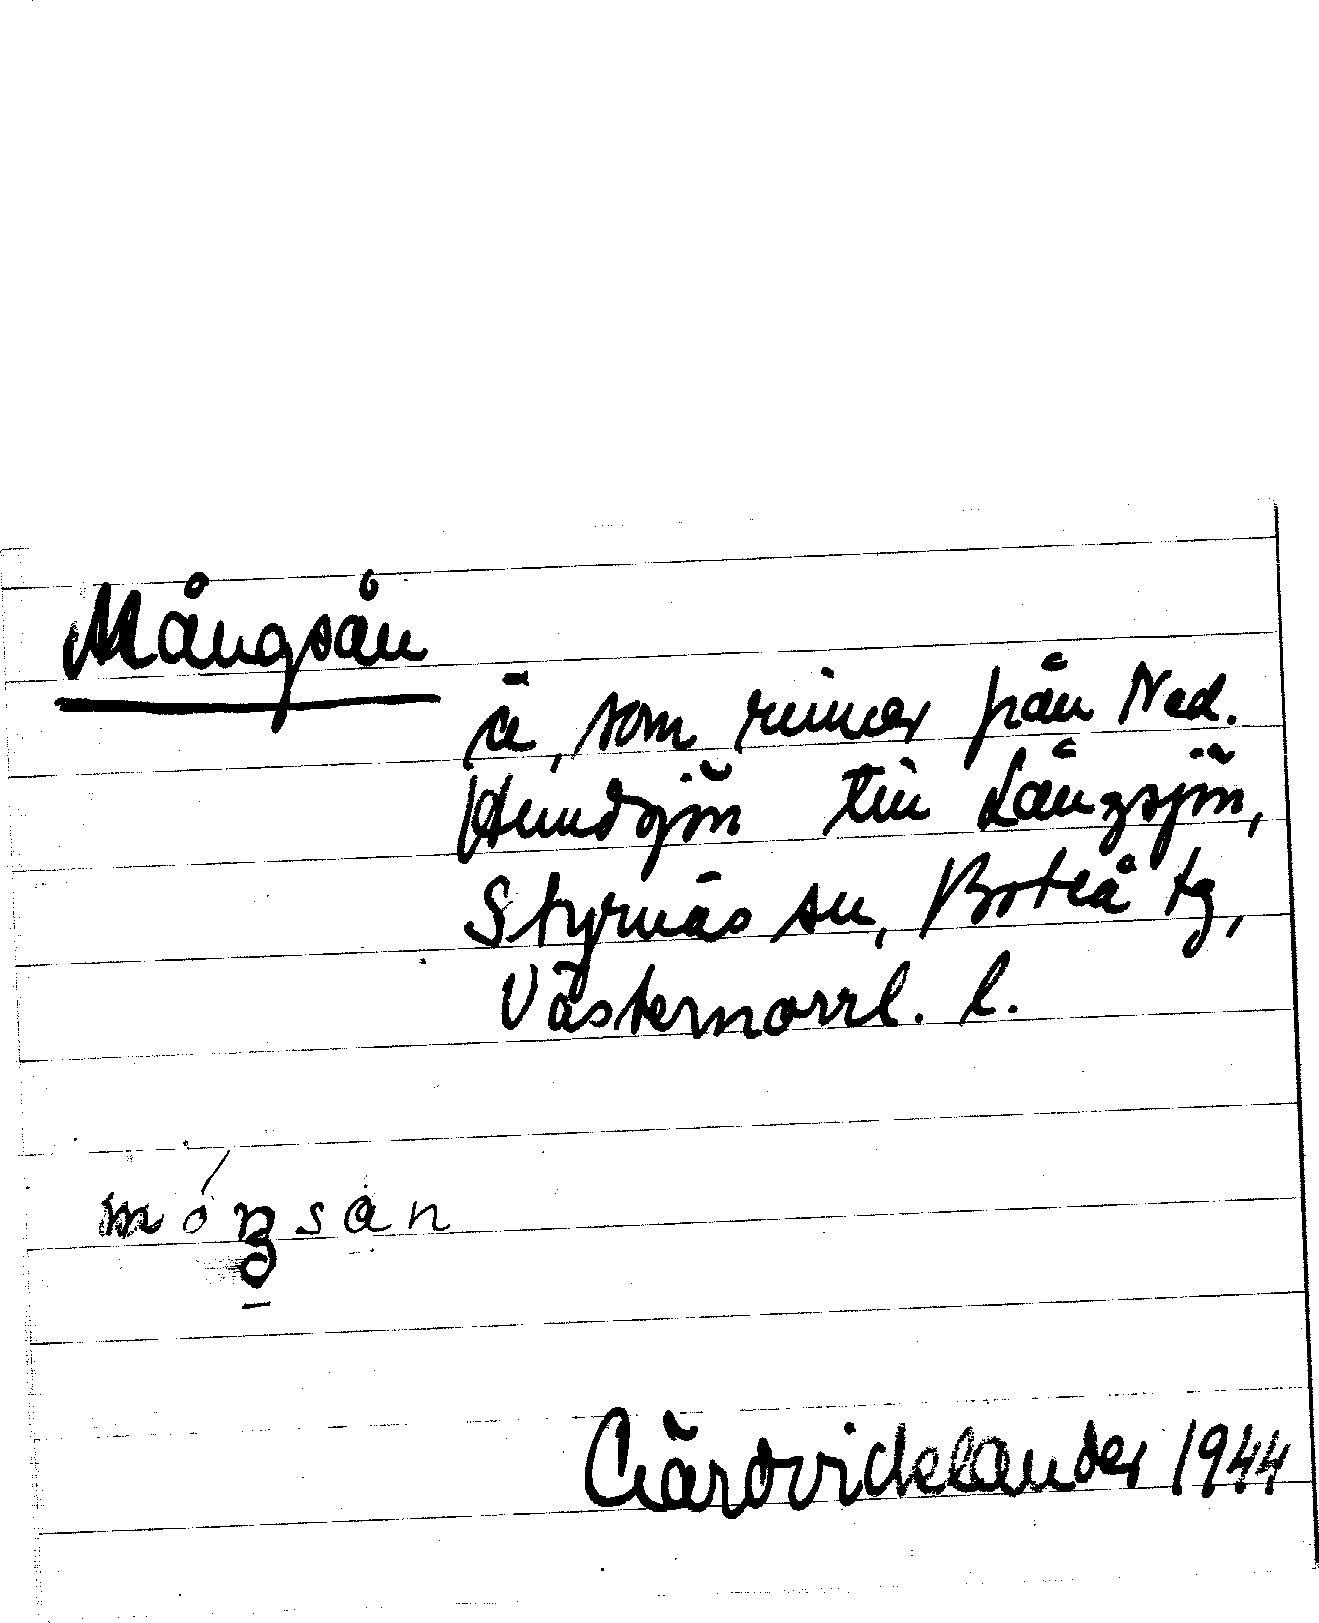 Mångsån
å, som rinner från Ned.
Hundsjön till Långsjön,
Styrnäs sn, Boteå tg,
Västernorrl. l.
1944